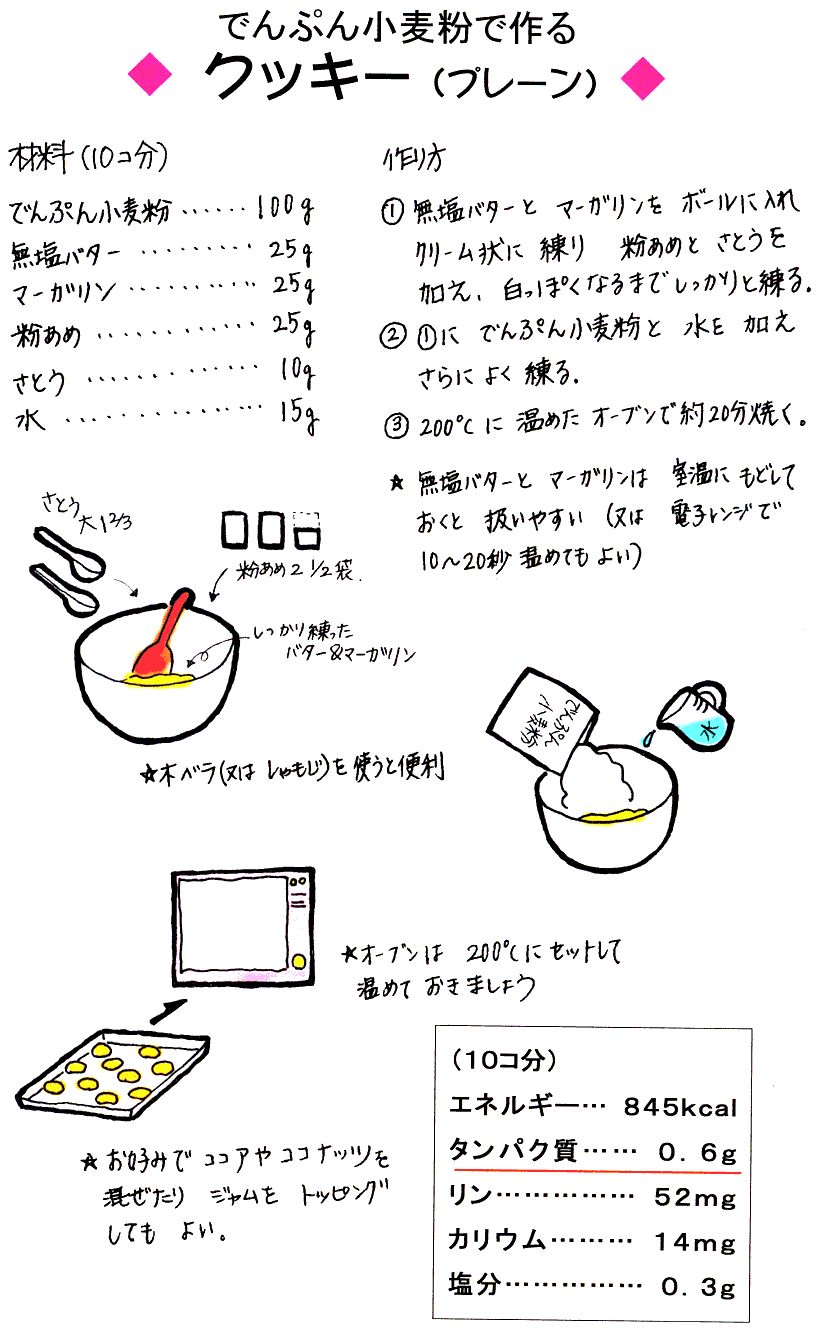 でんぷん小麦粉で作る
◆ クッキー(プレーン) ◆
材料(10コ分)
でんぷん小麦粉……100g
無塩バター………25g
マーガリン…………25g
粉あめ…………25g
さとう…………10g
水……………15g
作り方
① 無塩バターと マーガリンを ボールに入れ
クリーム状に 練り 粉あめと さとうを
加え、白っぽくなるまでしっかりと練る。
② ①に でんぷん小麦粉と 水を 加え
さらに よく 練る。
③ 200℃に 温めた オーブンで約20分焼く。
★ 無塩バターと マーガリンは 室温に もどして
おくと 扱いやすい (又は 電子レンジで
10〜20秒 温めてもよい)
さとう
大1 2/3
粉あめ2 1/2袋.
しっかり練った
バター&マーガリン
☆木ベラ(又は しゃもじ)を使うと便利
でんぷん
小麦粉
水
★オーブンは 200℃にセットして
温めて おきましょう
★ お好みで ココアや ココナッツを
混ぜたり ジャムを トッピング
しても よい。
(10コ分)
エネルギー… 845kcal
タンパク質…… 0.6g
リン…………… 52mg
カリウム……… 14mg
塩分…………… 0.3g